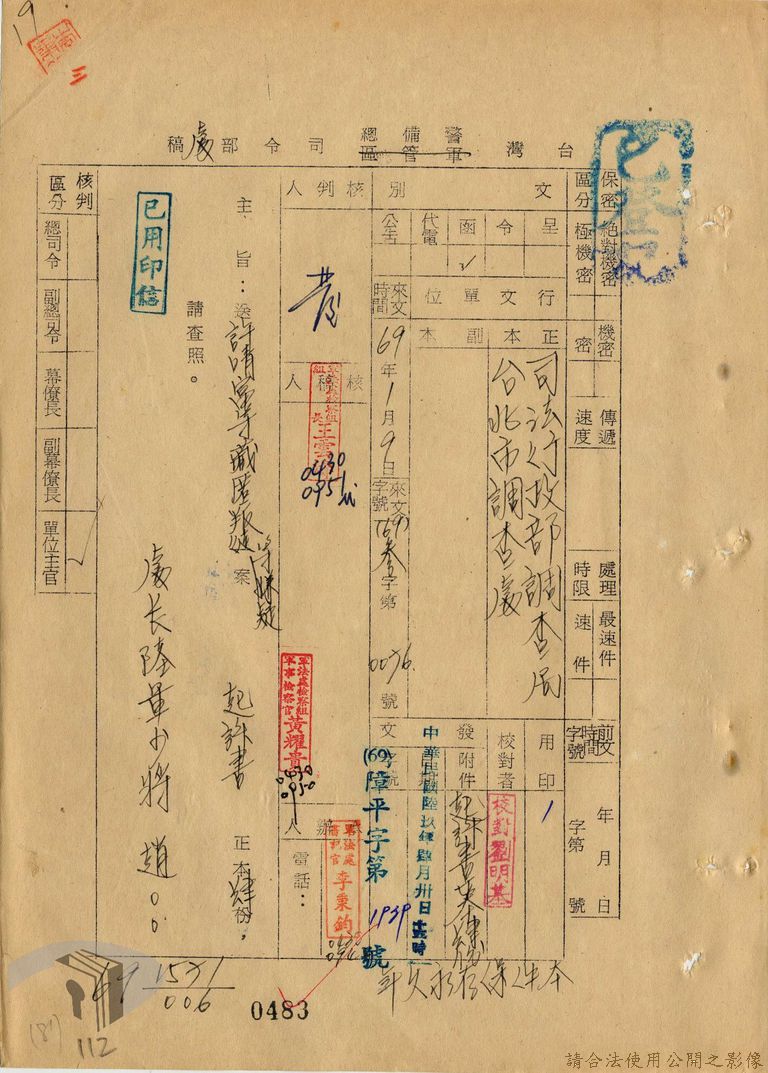 19
三
台灣警備總司令部處稿
軍管區
保密區分
絕對機密
極機密
機密
密
傳遞速度
處理時限
最速件
速件
前文時間字號
年月日
字第 號
文別
呈
令
函
代電
公告
行文單位
正本
副本
司法行政部調查局
台北市調查處
來文時間
69年1月9日
來文字號
(69)
字第0076號
用印
校對者
校對劉明基
發文
附件
起訴書
中華民國陸玖年肆月卅日
時
(69)障平字第1939號
核判人
核稿人
軍法處檢察組組長王雲
0430
0951
軍法處檢察組軍事檢察官黃耀貴
0430
0950
承辦人
軍法處書記官李秉鈞
0430
電話：
主旨：送許晴富等藏匿叛徒等嫌疑案起訴書正本肆份，
請查照。
已用印信
處長陸軍少將趙○○
核判區分
總司令
副總司令
幕僚長
副幕僚長
單位主官
本件保存
永久
年
69
1571
006
0483
(81)
112
請合法使用公開之影像